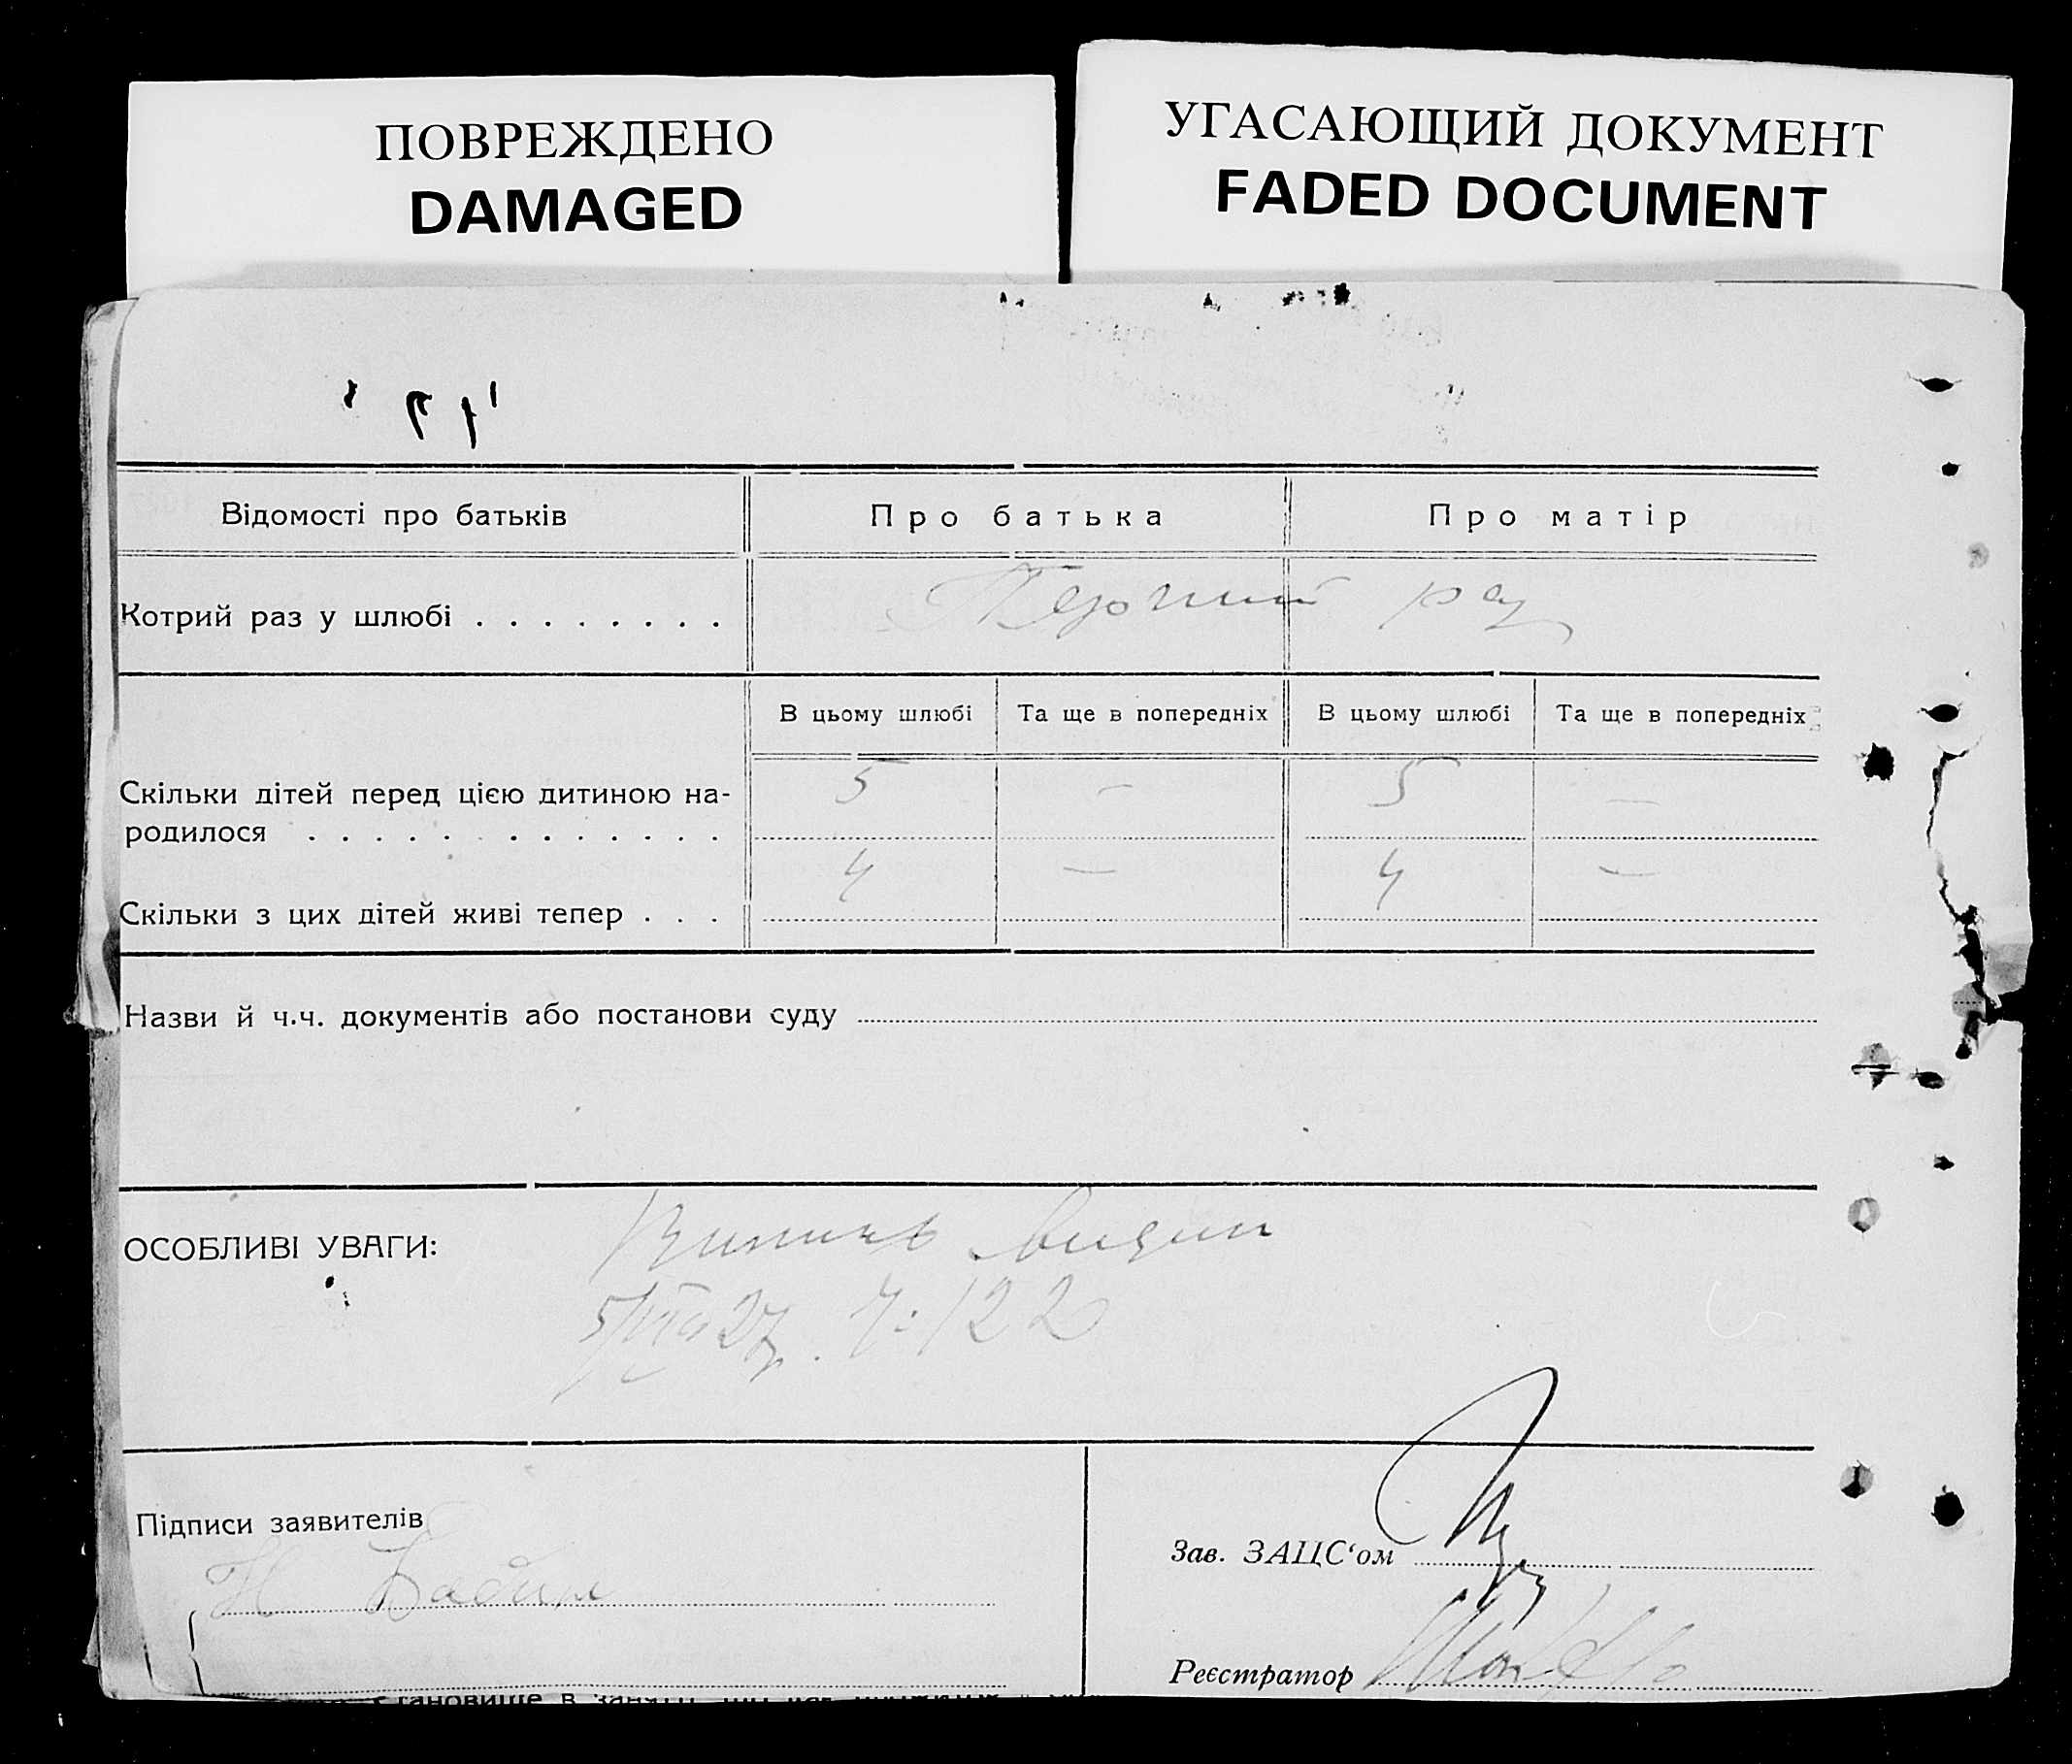 ПОВРЕЖДЕНО
DAMAGED
УГАСАЮЩИЙ ДОКУМЕНТ
FADED DOCUMENT
Відомості про батьків
Про батька
Про матір
Котрий раз у шлюбі . . . . . . . .
Перший раз
В цьому шлюбі
Та ще в попередніх
В цьому шлюбі
Та ще в попередніх
Скільки дітей перед цією дитиною на-
родилося . . . . . . . . . . . . .
5 — 5 —
Скільки з цих дітей живі тепер . . .
4 — 4 —
Назви й ч.ч. документів або постанови суду
ОСОБЛИВІ УВАГИ:
Випись видан
5/VII 27 р. Ч: 122
Підписи заявителів
Зав. ЗАЦС‘ом
Реєстратор